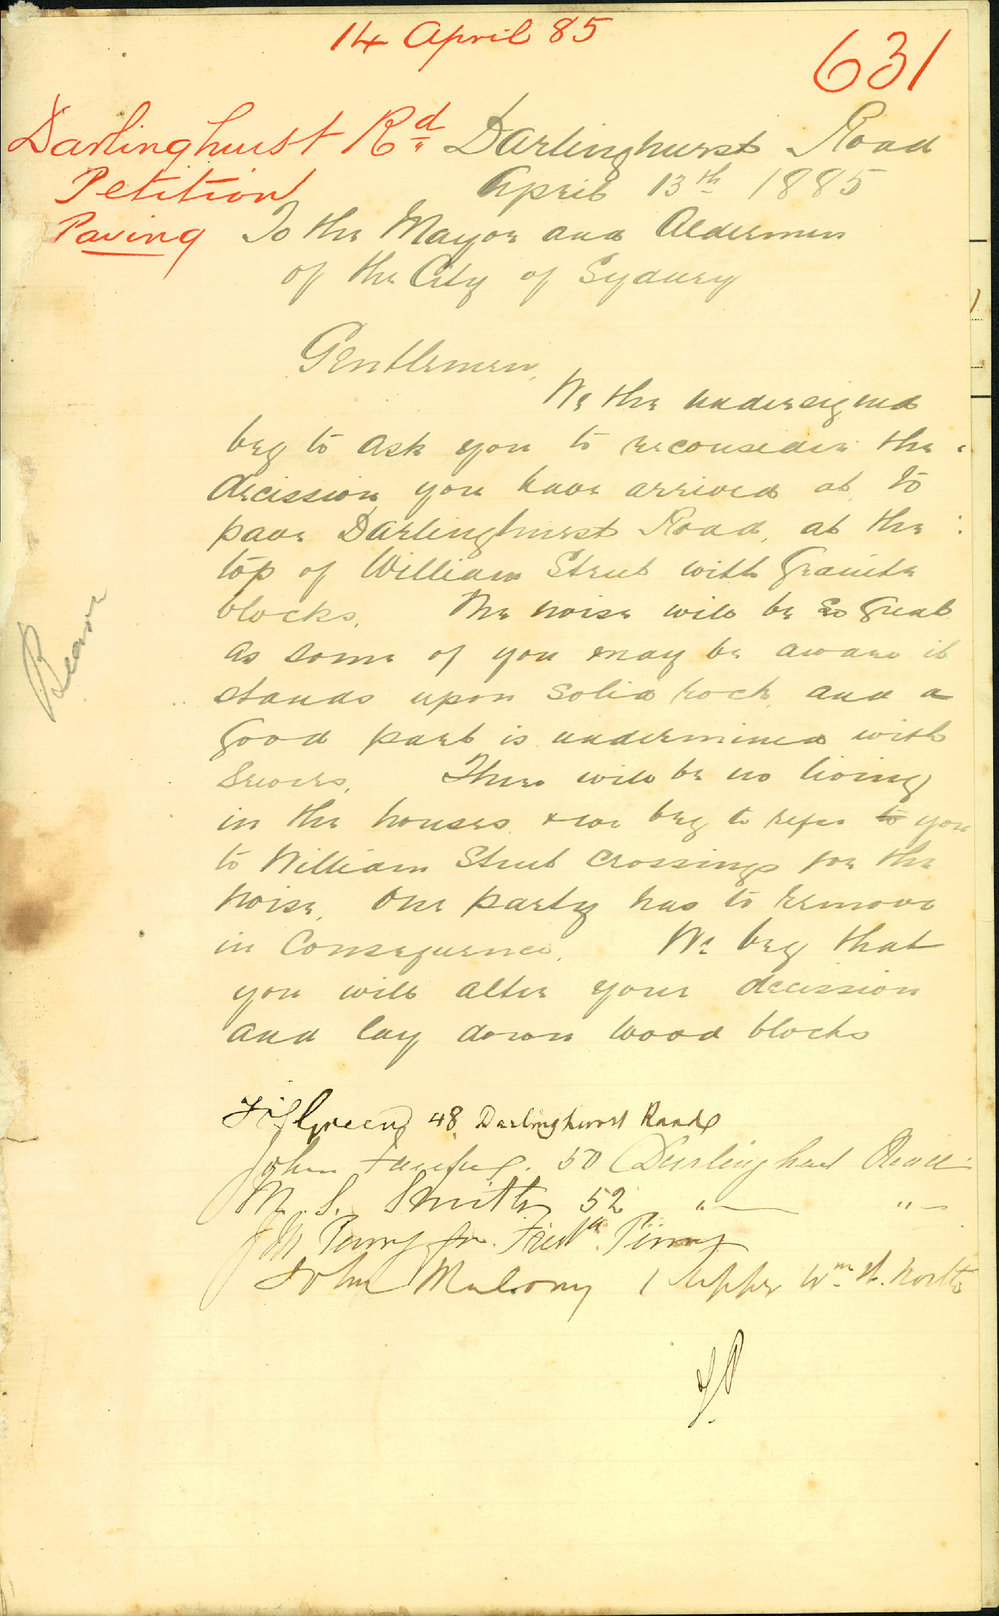 14 April 85
631
Darlinghurst Rd
Petition
Paving
Darlinghurst Road
April 13th 1885
To the Mayor and Aldermen
of the City of Sydney
Gentlemen,
We the undersigned
beg to ask you to reconsider the
decission you have arrived at, to
pave Darlinghurst Road, at the
top of William Street with Granite
blocks. The noise will be so great
as some of you may be aware it
stands upon solid rock, and a
good part is undermined with
Sewers. There will be no living
in the houses, & we beg to refer to you
to William Street crossings for the
noise, One party has to remove
in Consequence. We beg that
you will alter your decission
and lay down wood blocks
Green, 48 Darlinghurst Road
John 50 Darlinghurst Road
M. S. Smith 52 " "
Perry Perry
John Malony 1 Upper Wm St. North